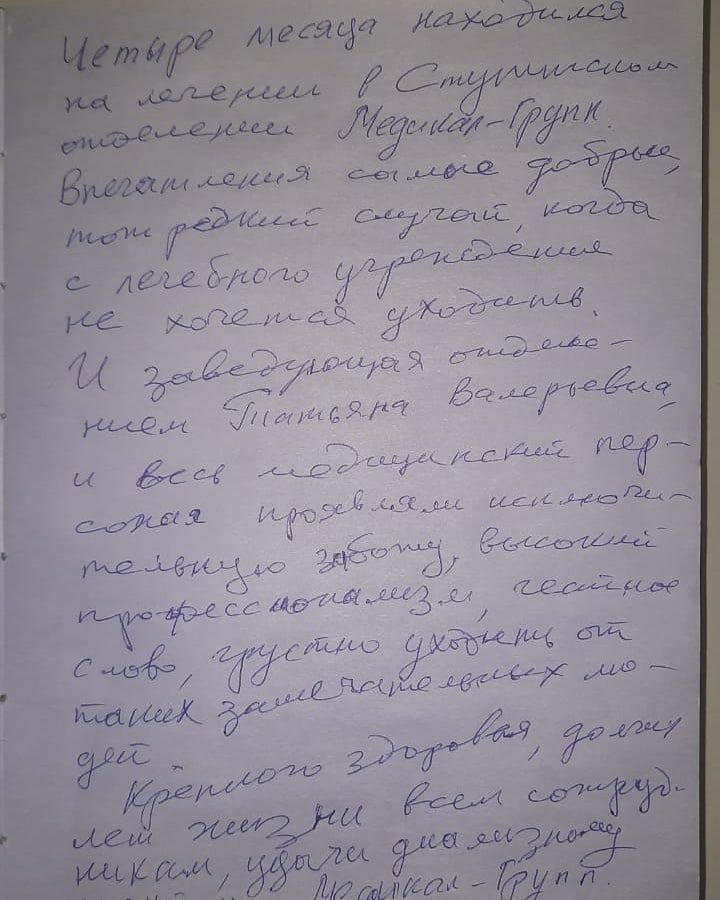 Четыре месяца находился
на лечении в Ступинском
отделении Медикал-Групп.
Впечатления самые добрые,
тот редкий случай, когда
с лечебного учреждения
не хочется уходить.
И заведующая отделе-
нием Татьяна Валерьевна,
и весь медицинский пер-
сонал проявляли исключи-
тельную заботу, высокий
профессионализм, честное
слово, грустно уходить от
таких замечательных лю-
дей.
Крепкого здоровья, долгих
лет жизни всем сотруд-
никам, удачи диализному
Медикал-Групп.